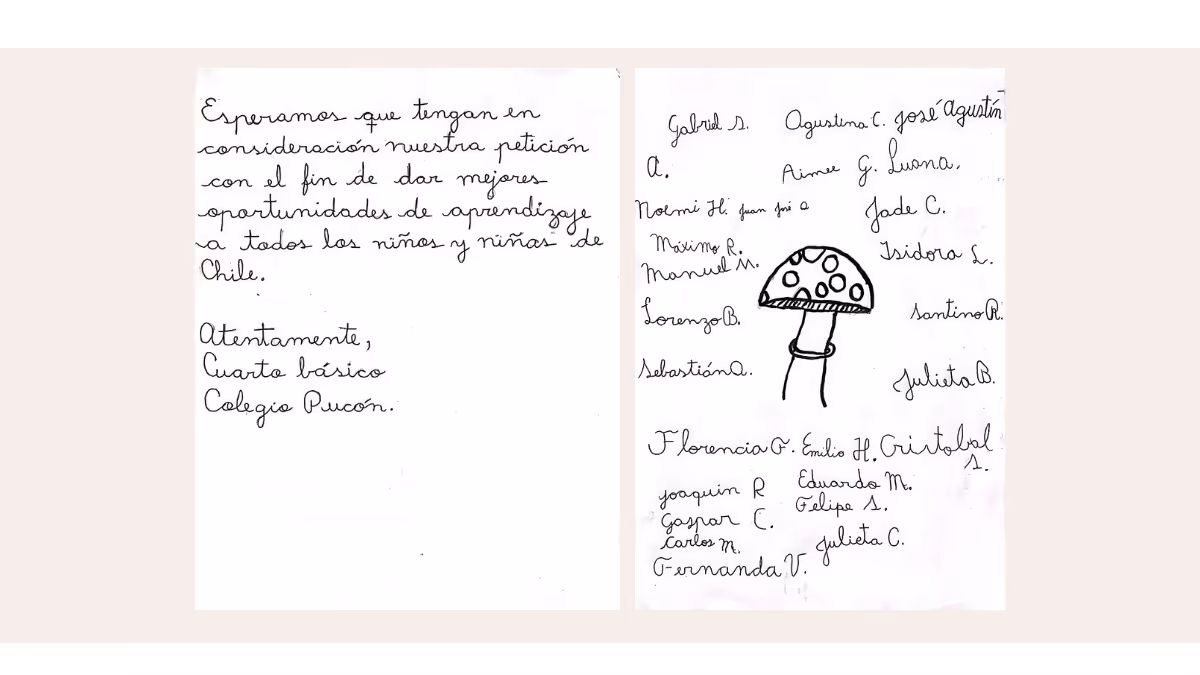 Esperamos que tengan en
consideración nuestra petición
con el fin de dar mejores
oportunidades de aprendizaje
a todos los niños y niñas de
Chile.
Atentamente,
Cuarto básico
Colegio Pucón.
Gabriel S. Agustina C. José Agustín
A. Aimee G. Luana.
Noemi H. Juan José O Jade C.
Máximo R. Isidora L.
Manuel M.
Lorenzo B. Santino R.
Sebastián O. Julieta B.
Florencia F. Emilio H. Cristobal
S.
Joaquin R Eduardo M.
Gaspar C. Felipe S.
Carlos M. Julieta C.
Fernanda V.